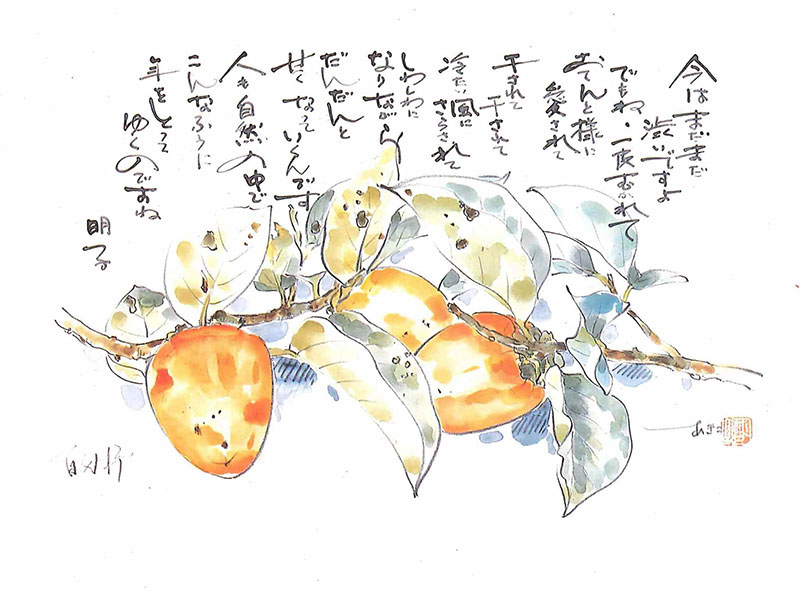 今はまだまだ
渋いですよ
でもね、一皮むかれて
おてんと様に
愛されて
干されて
干されて
冷たい風に
さらされて
しわしわに
なりながら
だんだんと
甘くなっていくんです
人も自然の中で
こんなふうに
年をとって
ゆくのですね
明子
百匁柿